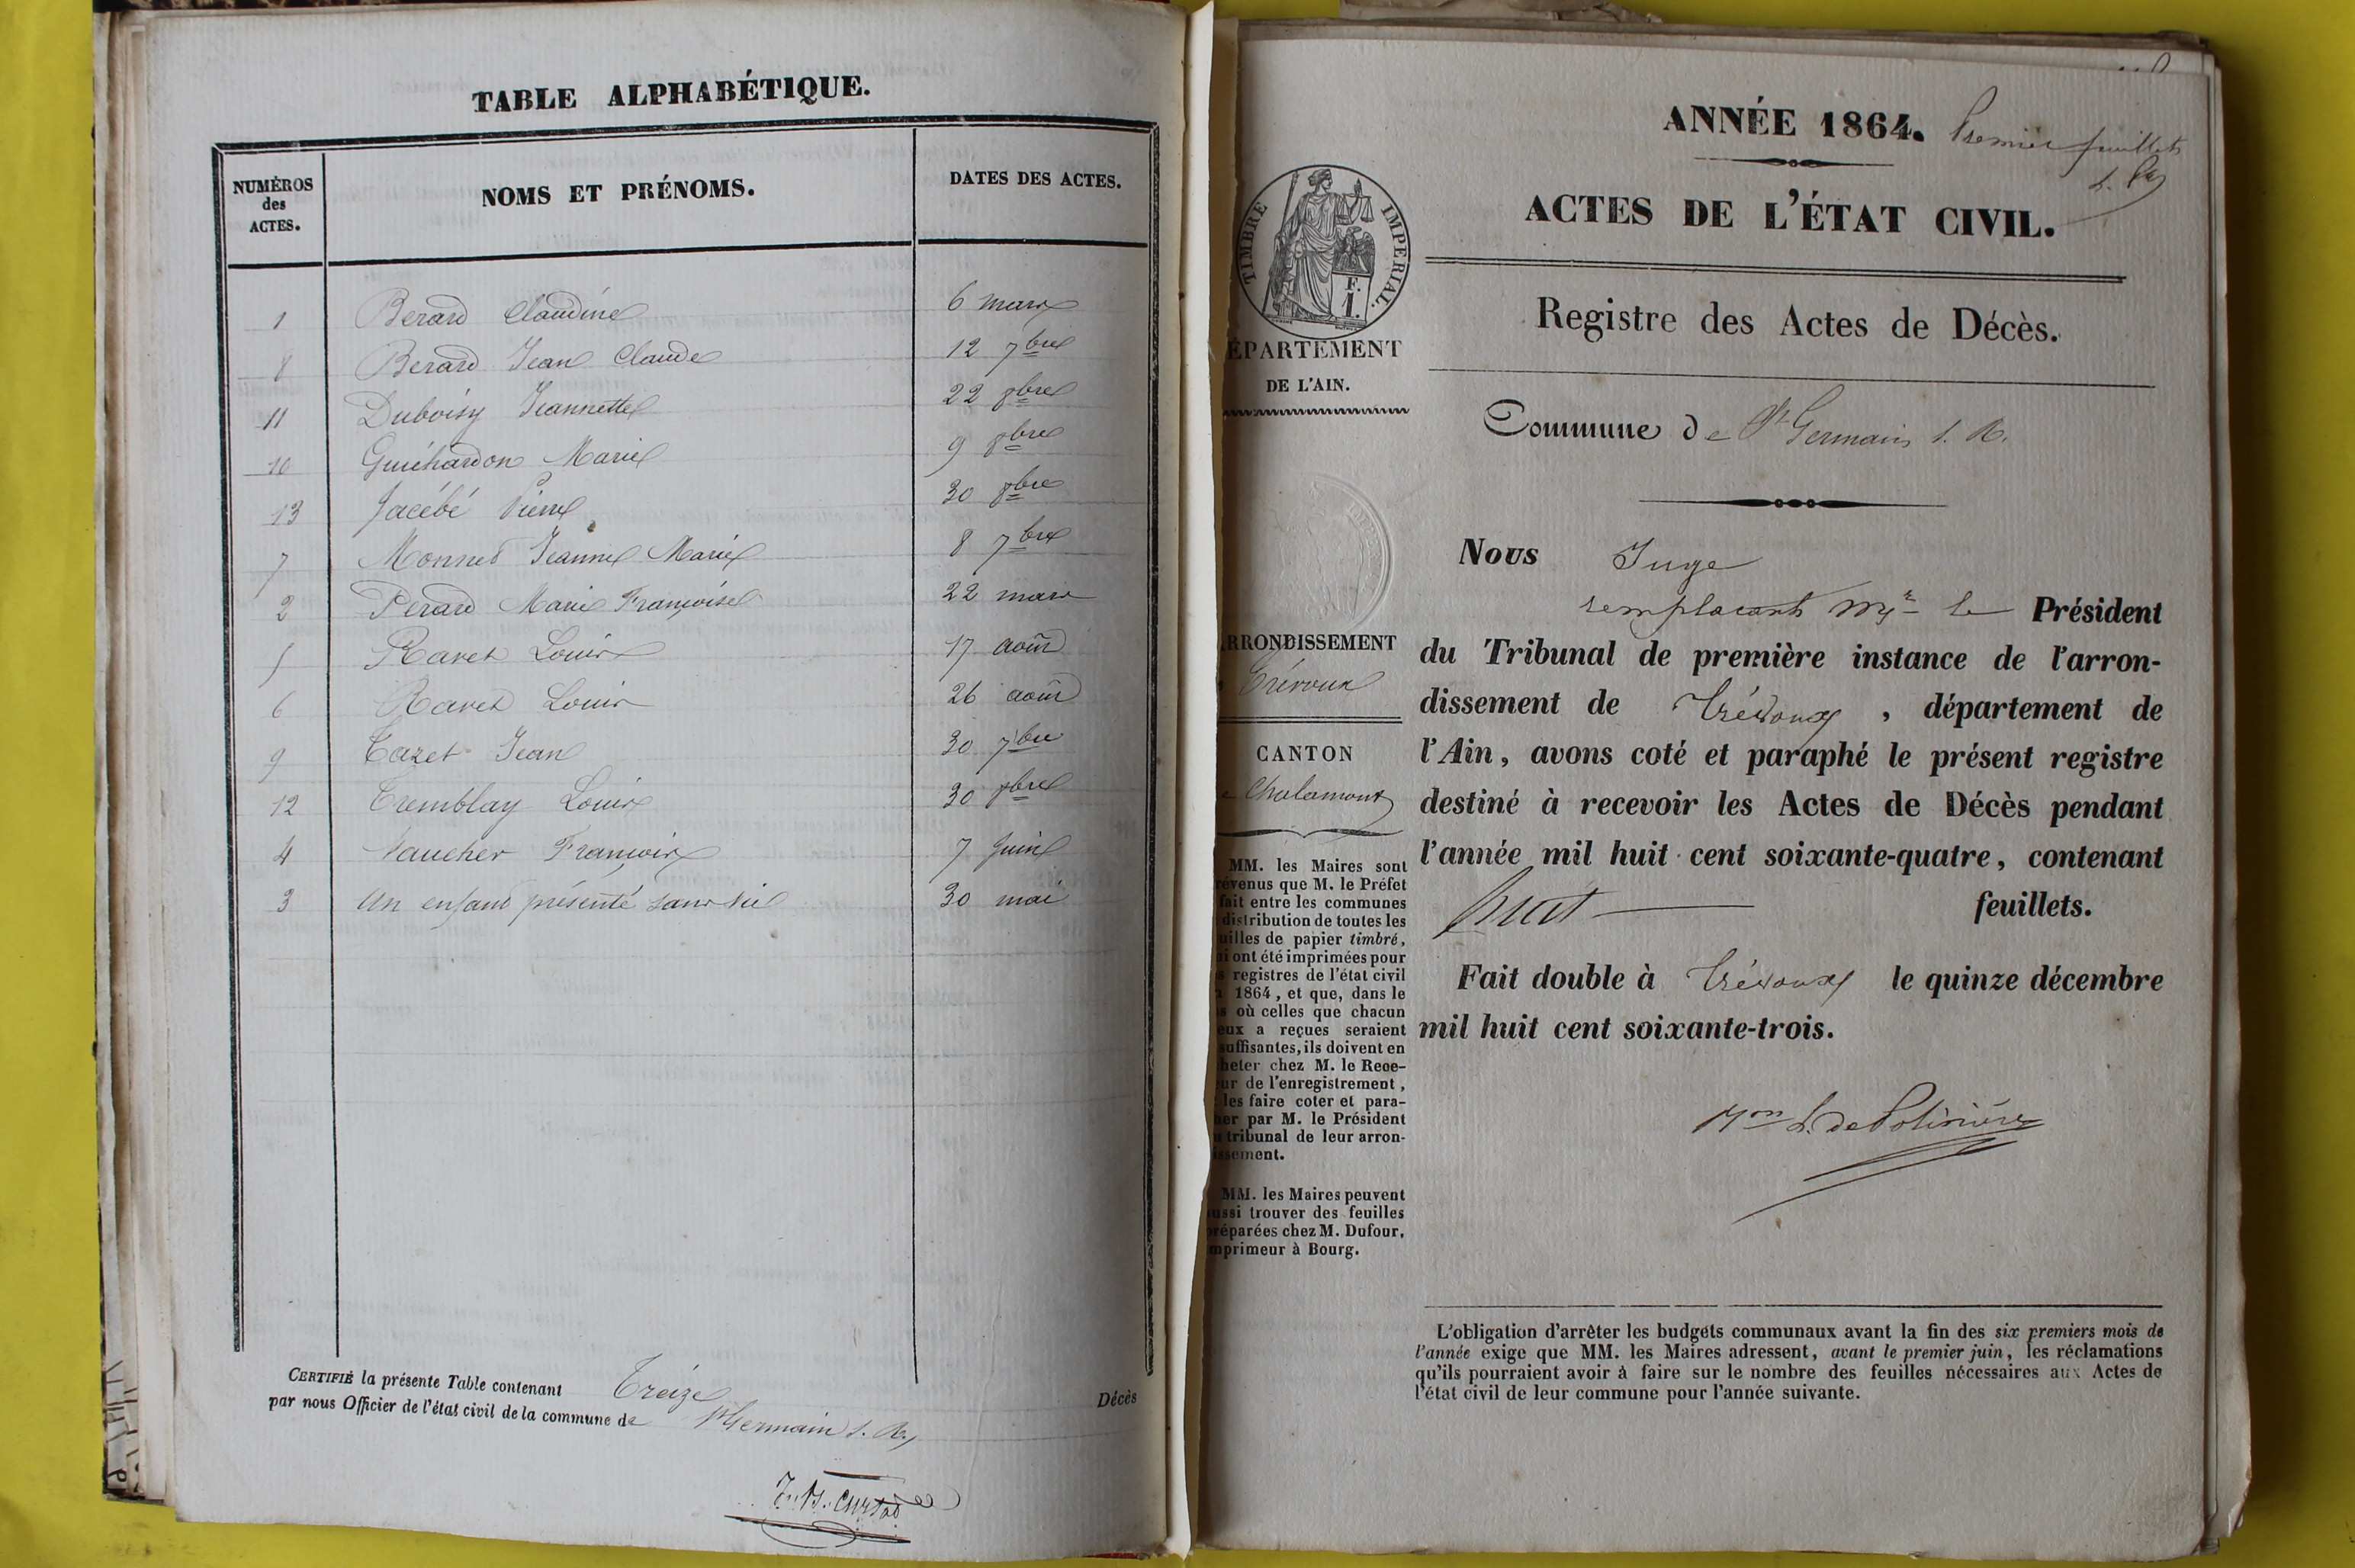 TABLE ALPHABÉTIQUE.
NUMÉROS des ACTES. NOMS ET PRÉNOMS. DATES DES ACTES.
1 Berard Claudine 6 mars
8 Berard Jean Claude 12 7bre
11 Duboisy Jeannette 22 8bre
10 Guichardon Marie 9 8bre
13 Jacébé Pierre 30 8bre
7 Monnet Jeanne Marie 8 7bre
2 Perard Marie Françoise 22 mars
5 Ravet Louis 17 août
6 Ravet Louis 26 août
9 Cazet Jean 30 7bre
12 Tremblay Louis 30 8bre
4 Vaucher François 7 Juin
3 Un enfant présenté sans vie 30 mai
CERTIFIÉ la présente Table contenant Treize Décès
par nous Officier de l'état civil de la commune de St Germain s. R.
ANNÉE 1864. Premier feuillet
ACTES DE L'ÉTAT CIVIL.
TIMBRE IMPERIAL.
F.
1.
Registre des Actes de Décès.
ÉPARTEMENT
DE L'AIN.
Commune de St Germain s. R.
Nous Juge
remplacant Mr le Président
du Tribunal de première instance de l'arron-
dissement de Trévoux, département de
l'Ain, avons coté et paraphé le présent registre
destiné à recevoir les Actes de Décès pendant
l'année mil huit cent soixante-quatre, contenant
huit feuillets.
Fait double à Trévoux le quinze décembre
mil huit cent soixante-trois.
RRONDISSEMENT
Trévoux
CANTON
Chalamont
MM. les Maires sont
révenus que M. le Préfet
fait entre les communes
distribution de toutes les
uilles de papier timbré,
i ont été imprimées pour
s registres de l'état civil
1864, et que, dans le
s où celles que chacun
eux a reçues seraient
suffisantes, ils doivent en
heter chez M. le Rece-
ur de l'enregistrement,
les faire coter et para-
her par M. le Président
tribunal de leur arron-
issement.
MM. les Maires peuvent
ussi trouver des feuilles
réparées chez M. Dufour,
mprimeur à Bourg.
L'obligation d'arrêter les budgets communaux avant la fin des six premiers mois de
l'année exige que MM. les Maires adressent, avant le premier juin, les réclamations
qu'ils pourraient avoir à faire sur le nombre des feuilles nécessaires aux Actes de
l'état civil de leur commune pour l'année suivante.